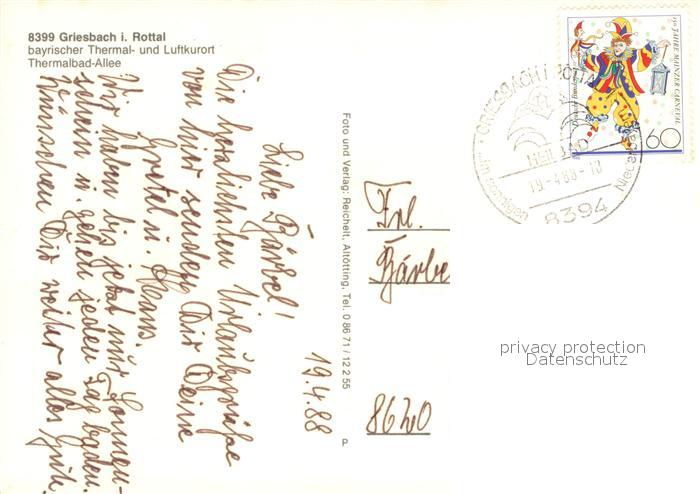 8399 Griesbach i. Rottal
bayrischer Thermal- und Luftkurort
Thermalbad-Allee
19.4.88
Liebe Bärbel!
Die herzlichsten Urlaubsgrüße
von hier senden Dir Deine
Gretel u. Hans.
Wir haben bis jetzt nur Sonnen-
schein u. gehen jeden Tag baden.
Wünschen Dir weiter alles Gute.
Foto und Verlag: Reichelt, Altötting, Tel. 0 86 71 / 12 2 55
P
150 JAHRE MAINZER CARNEVAL
60
GRIESBACH i. ROTTAL
HEILBAD
19.-4.88-18
im sonnigen
8394
Frl.
Bärbe
8620
privacy protection
Datenschutz